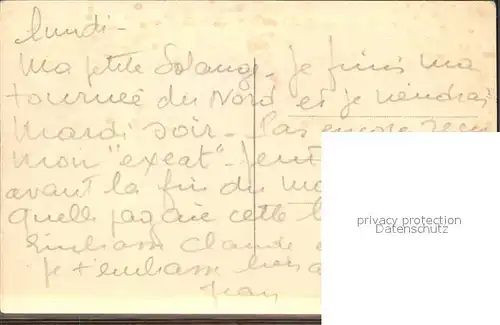 lundi -
Ma petite Solange - Je finis ma
tournée du Nord et je viendrai
Mardi soir - Pas encore reçu
mon "exeat" -
avant la fin du
Quelle pagaie cette
Claude
Je t'embrasse bien
Jean
privacy protection
Datenschutz